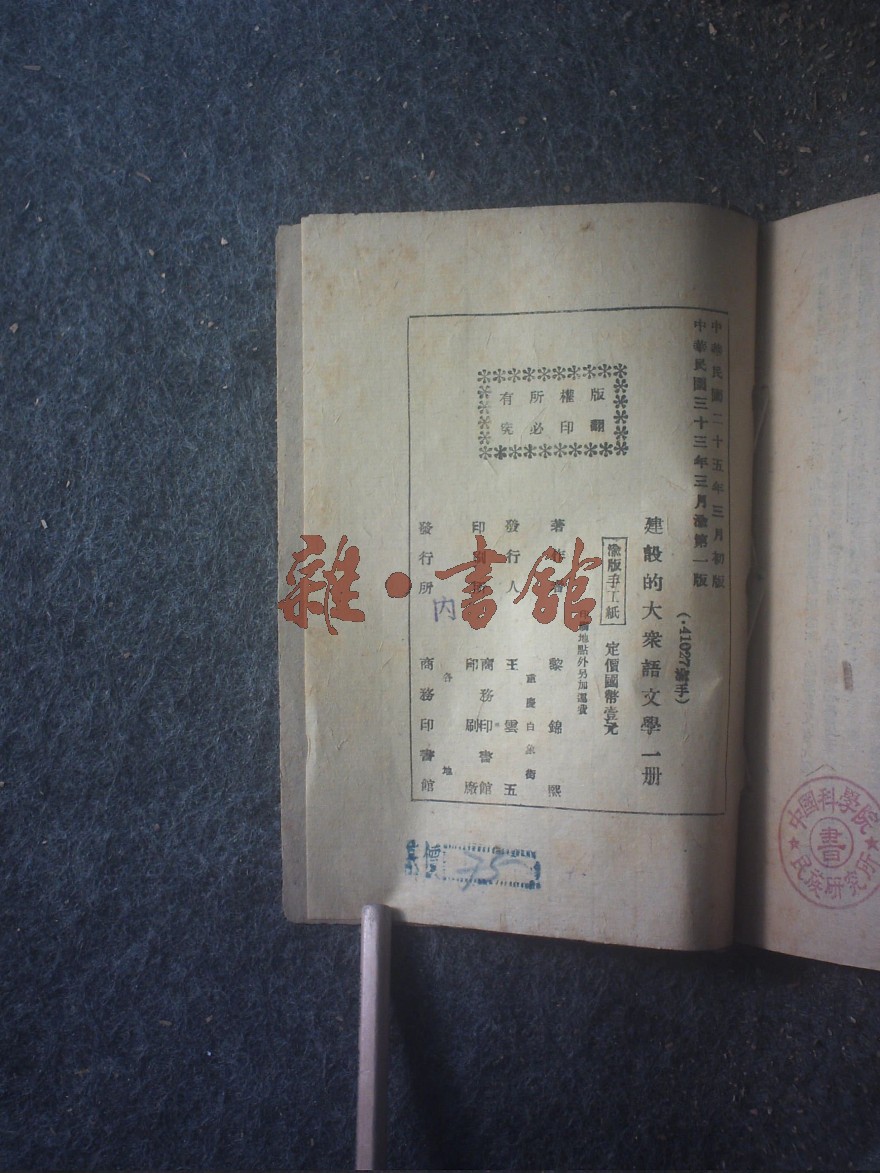 中華民國二十五年三月初版
中華民國三十三年三月渝第一版
(·41027渝手)
建設的大衆語文學一册
渝版手工紙
定價國幣壹元
地點外另加運費
著作者
黎錦熙
重慶白象街
發行人
王雲五
印刷所
商務印書館
印刷廠
各地
發行所
商務印書館
版權所有
翻印必究
內
價
75
中國科學院
民族研究所
書
雜·書館